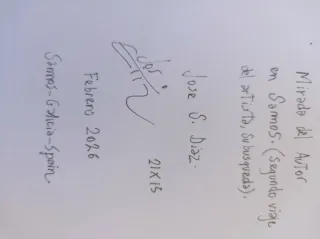 Mirada del Autor
en Samos. (segundo viaje
del artista, su busqueda).
Jose S. Diaz-
21x15
Febrero 2026
Samos-Galicia-Spain